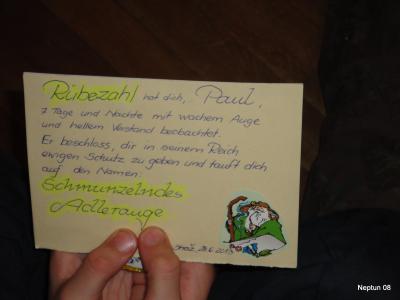 Rübezahl hat dich, Paul,
7 Tage und Nächte mit wachem Auge
und hellem Verstand beobachtet.
Er beschloss, dir in seinem Reich
ewigen Schutz zu geben und tauft dich
auf den Namen:
Schmunzelndes
Adlerauge
Neptun 08